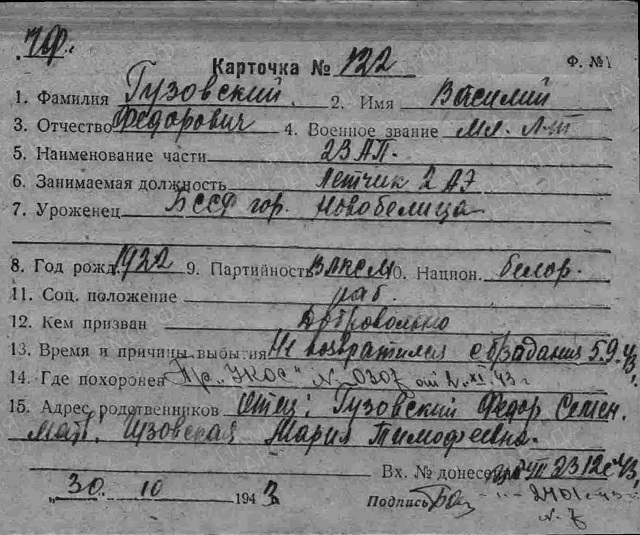 Ф. №1
Карточка № 122
1. Фамилия Гузовский 2. Имя Василий
3. Отчество Федорович 4. Военное звание мл. Л-т
5. Наименование части 23 АП.
6. Занимаемая должность Летчик 2 АЭ
7. Уроженец БССР гор. Новобелица
8. Год рожд. 1922 9. Партийность ВЛКСМ 10. Национ. белор.
11. Соц. положение раб.
12. Кем призван Добровольно
13. Время и причины выбытия Не возвратился с б/задания 5.9.43
14. Где похоронен Пр. "УКОС" № 0307 от 2.XI.43 г
15. Адрес родственников Отец: Гузовский Федор Семен.
мать Гузовская Мария Тимофеевна.
Вх. № донесения 2312с 43
"30" 10 1943
Подпись